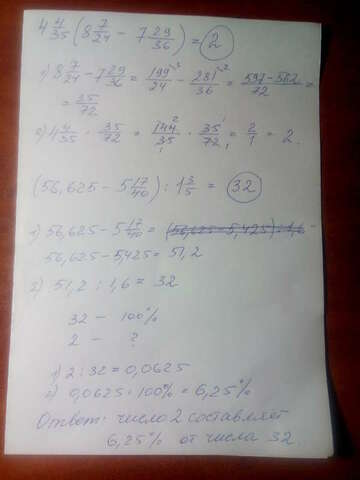 4 4/35 (8 7/24 − 7 29/36) = 2
1) 8 7/24 − 7 29/36 = 199/24 − 281/36 = 597−562/72 =
= 35/72
2) 4 4/35 · 35/72 = 144/35 · 35/72 = 2/1 = 2.
(56,625 − 5 17/40) : 1 3/5 = 32
1) 56,625 − 5 17/40 =
56,625 − 5,425 = 51,2
2) 51,2 : 1,6 = 32
32 − 100%
2 − ?
1) 2 : 32 = 0,0625
2) 0,0625 · 100% = 6,25%
Ответ: число 2 составляет
6,25% от числа 32.